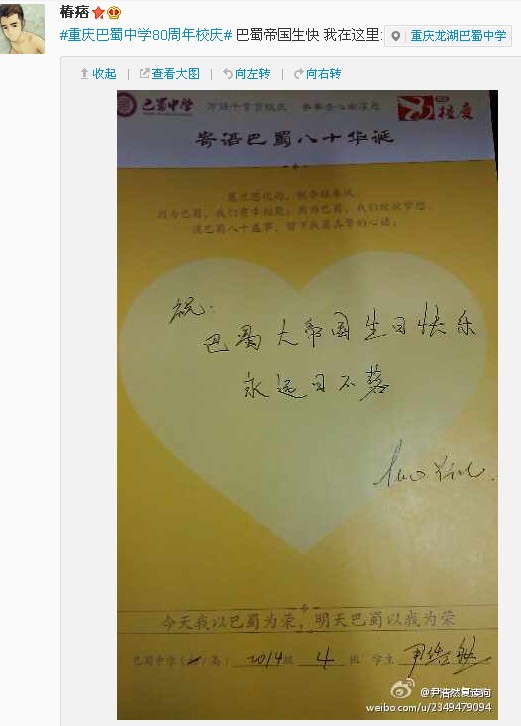 椿痞
#重庆巴蜀中学80周年校庆# 巴蜀帝国生快 我在这里: 重庆龙湖巴蜀中学
收起 | 查看大图 | 向左转 | 向右转
巴蜀中学
寄语巴蜀八十华诞
祝:
巴蜀大帝国生日快乐
永远日不落
今天我以巴蜀为荣,明天巴蜀以我为荣
2014级 4 班 学生 尹浩然
@尹浩然复读向
weibo.com/u/2349479094